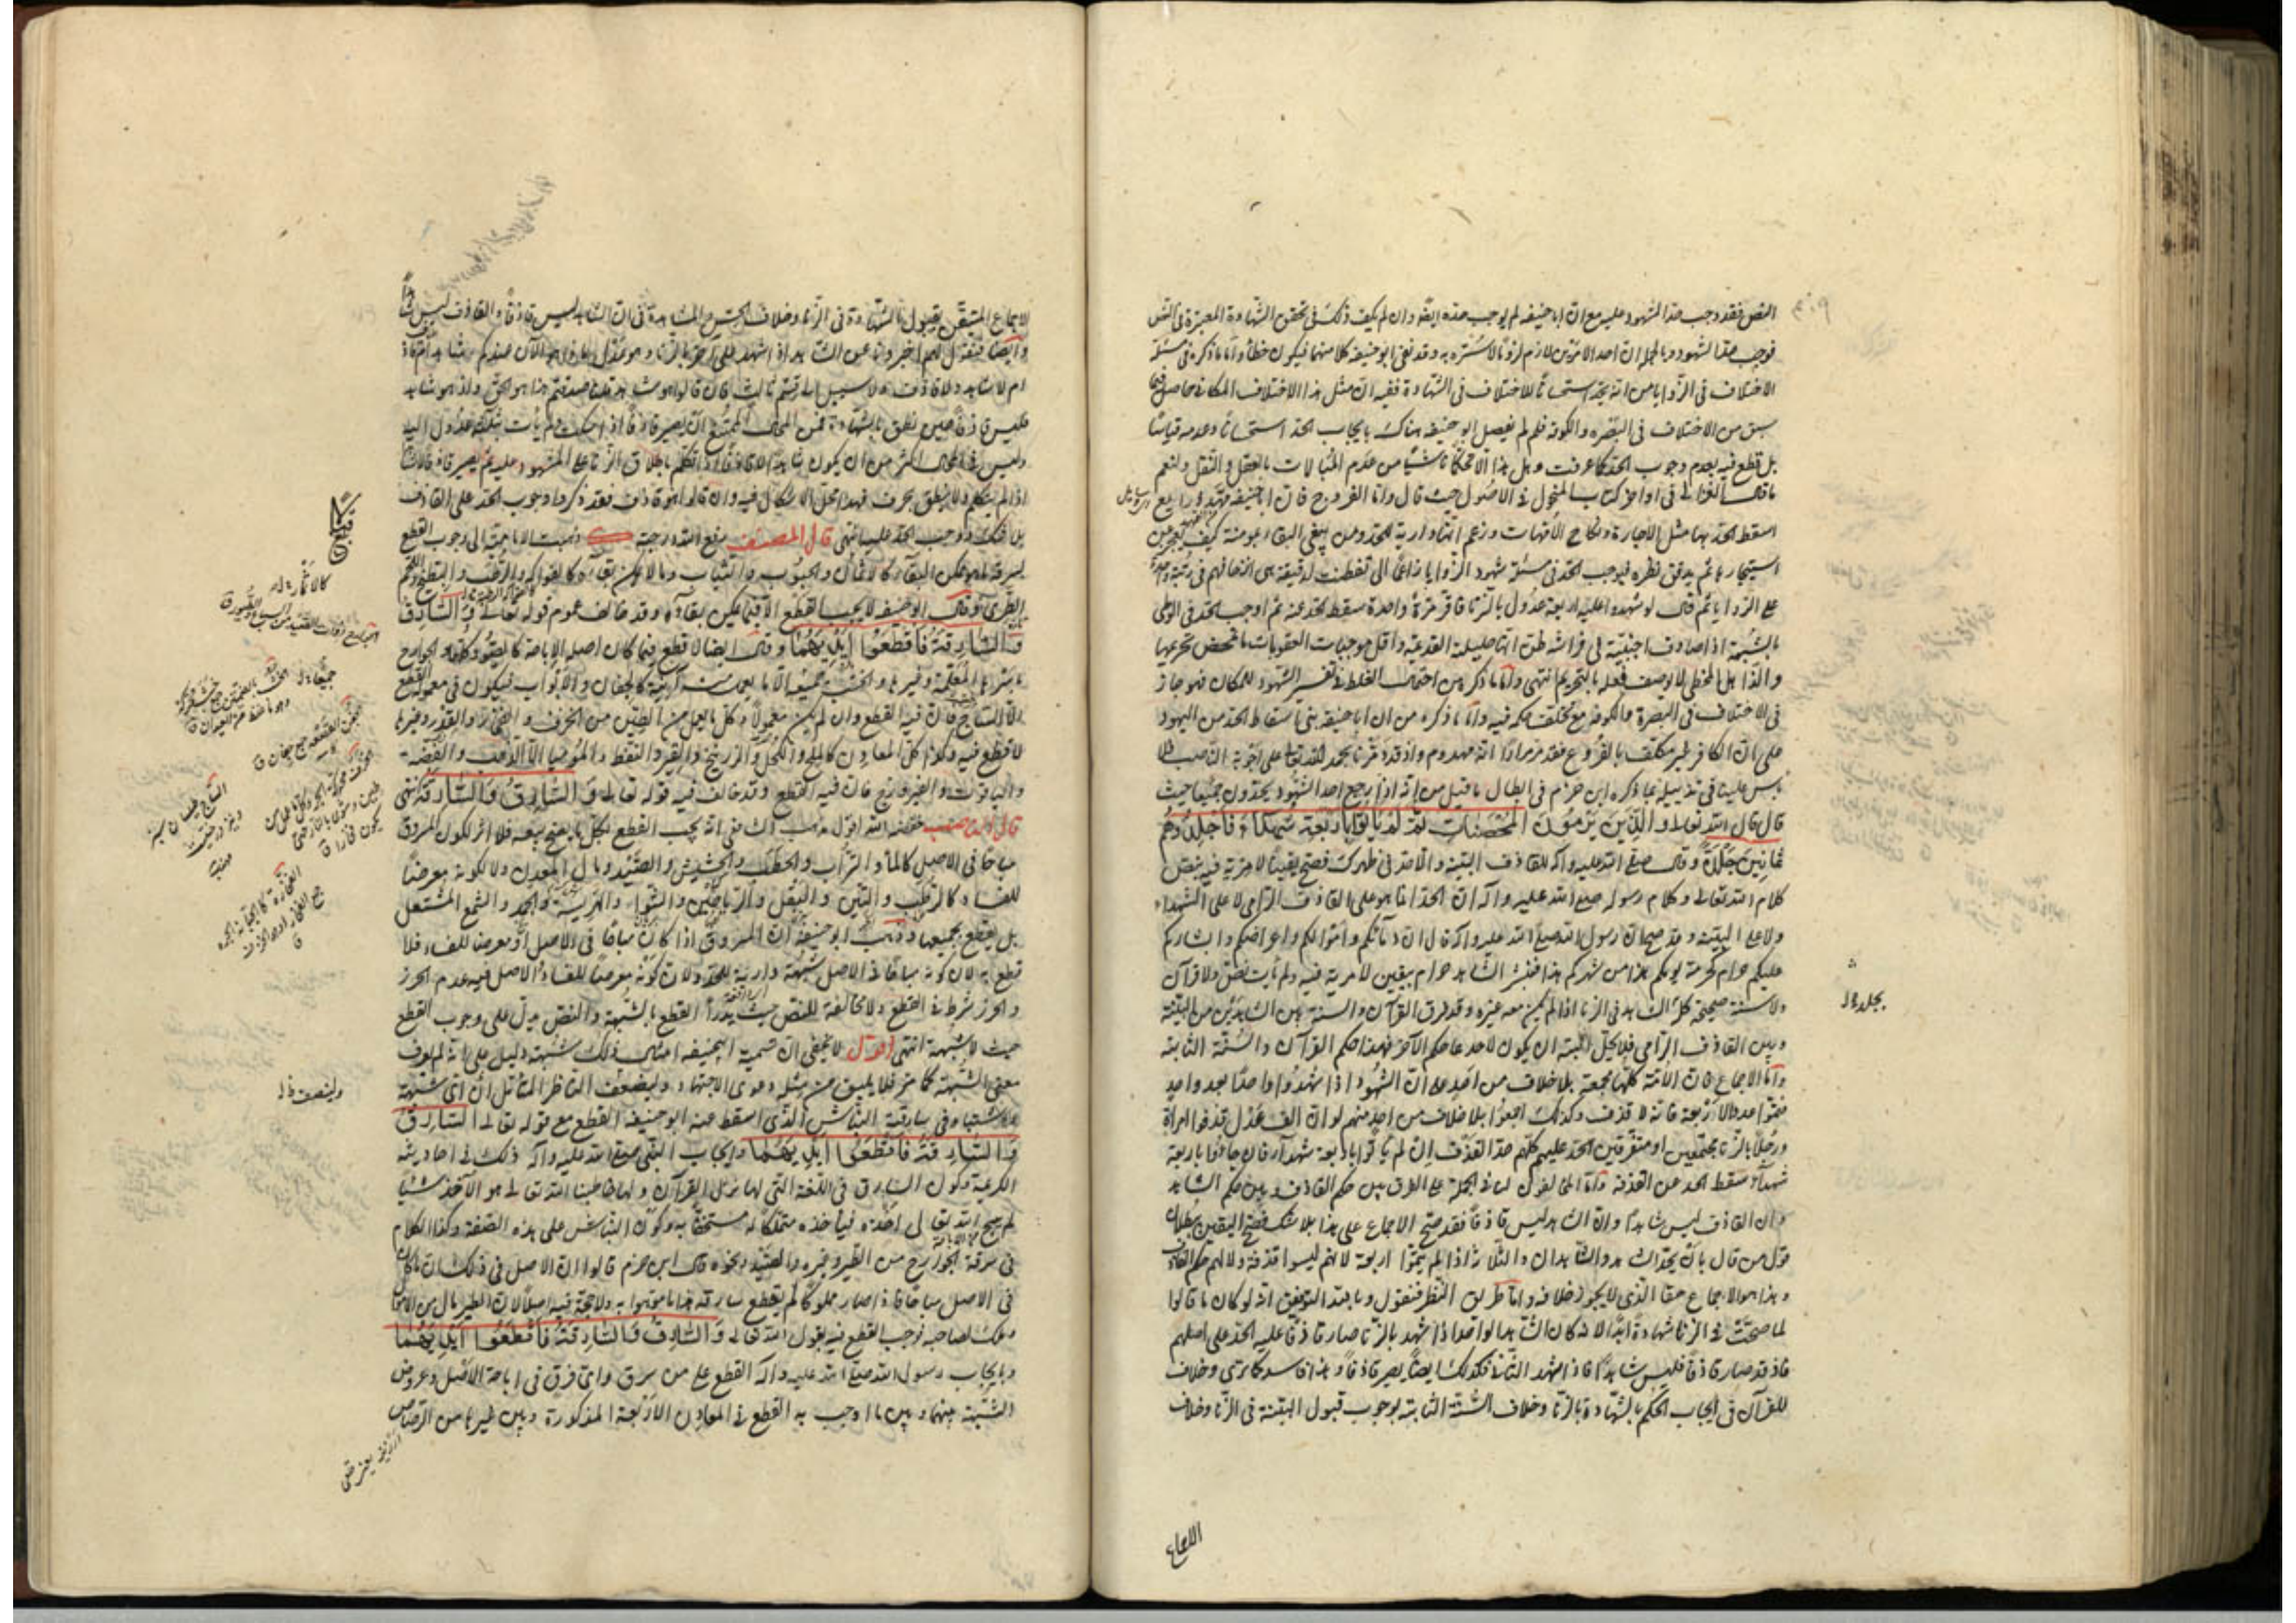 النص فقد وجب حد الشهود عليه مع ان ابا حنيفة لم يوجب حده ايضا وان لم يكف ذلك في تحقق الشهادة المعتبرة في الشرع
فوجب حد الشهود وبالجملة ان احد الامرين لازم لزوما لا سترة به وقد نفى ابو حنيفة كلا منهما فيكون خطأ واما ما ذكره في مسئلة
الاختلاف في الزوايا من انه يحد استحسانا للاختلاف في الشهادة ففيه ان مثل هذا الاختلاف المكاني حاصل فيما
سبق من الاختلاف في البصرة والكوفة فلم لم يفصل ابو حنيفة هناك بايجاب الحد استحسانا وعدمه قياسا
بل قطع فيه بعدم وجوب الحد كما عرفت وهل هذا الا تحكما ناشيا من عدم المبالات بالعقل والنقل ولنعم
ما قال الغزالي في اواخر كتاب المنخول في الاصول حيث قال واما الفروج فان ابا حنيفة
اسقط الحد بها مثل الاجارة ونكاح الامهات وزعم انها دارية للحد ومن يبغي البغاء بمومسة كيف يعجز عن
استيجارها ثم يدقق نظره فيوجب الحد في مسئلة شهود الزوايا زاعما اني تفطنت لدقيقة هي
على الزوايا ثم قال لو شهدوا عليه اربعة عدول بالزنا فاقر مرة واحدة سقط الحد عنه ثم اوجب الحد في الوطي
بالشبهة اذا صادف اجنبية في فراشه ظن انها حليلته القديمة واقل موجبات العقوبات ما تمحض تحريمها
والذاهل المخطي لا يوصف فعله بالتحريم انتهى واما ما ذكره من احتمال الغلط في تفسير الشهود للمكان فهو جاز
في الاختلاف في البصرة والكوفة مع تخلف حكمه فيه واما ما ذكره من ان ابا حنيفة بنى اسقاط الحد من اليهود
على ان الكافر غير مكلف بالفروع فقد مر مرارا انه مهدوم واذ قد مرنا بحمد الله تعالى على اجوبة الناصب فلا
بأس علينا في تذييله بما ذكره ابن حزم في ابطال ما قيل من انه اذا رجع احد الشهود يحدون جميعا حيث
قال قال الله تعالى والذين يرمون المحصنات ثم لم يأتوا باربعة شهداء فاجلدوهم
ثمانين جلدة وقال صلى الله عليه واله للقاذف البينة والا حد في ظهرك فصح يقينا لا مرية فيه بنص
كلام الله تعالى وكلام رسوله صلى الله عليه واله ان الحد انما هو على القاذف الرامي لا على الشهداء
ولا على البينة وقد صح ان رسول الله صلى الله عليه واله قال ان دمائكم واموالكم واعراضكم وابشاركم
عليكم حرام كحرمة يومكم هذا من شهركم هذا فبشر الشاهد حرام بيقين لا مرية فيه ولم يأت نص ولا قرآن
ولا سنة صحيحة الشاهد في الزنا اذا لم يكن معه غيره وقد فرق القرآن والسنة بين الشاهد من البينة
وبين القاذف الرامي فلا يحل البتة ان يكون لاحدهما حكم الآخر فهذا حكم القرآن والسنة الثابتة
واما الاجماع فان الامة كلها مجمعة بلا خلاف من احد على ان الشهود اذا شهدوا واحدا بعد واحد
فتموا عدولا اربعة فانه لا قذف وكذلك اجمعوا بلا خلاف من احد منهم لو ان الف عدل قذفوا امرأة
ورجلا بالزنا مجتمعين او متفرقين الحد عليهم كلهم حد القذف ان لم يأتوا باربعة شهداء فان جاؤا باربعة
شهداء سقط الحد عن القذفة
وان القاذف ليس شاهدا وان الشاهد ليس قاذفا فقد صح الاجماع على هذا بلا شك فصح اليقين ببطلان
قول من قال بان يحد الشاهد والشاهدان والثلاثة اذا لم يتموا اربعة لانهم ليسوا قذفة ولا لهم حكم القاذف
وهذا هو الاجماع حقا الذي لا يجوز خلافه واما طريق النظر فنقول وبالله التوفيق انه لو كان ما قالوا
لما صحت في الزنا شهادة ابدا لانه كان الشاهد الواحد اذا شهد بالزنا صار قاذفا عليه الحد على اصلهم
فاذ قد صار قاذفا فليس شاهدا فاذا شهد الثاني فكذلك ايضا يصير قاذفا وهذا فاسد كما ترى وخلاف
للقرآن في ايجاب الحكم بالشهادة بالزنا وخلاف السنة الثابتة بوجوب قبول البينة في الزنا وخلاف
الاجماع
الاجماع المتيقن بقبول الشهادة في الزنا وخلاف الحس والمشاهدة في ان الشاهد ليس قاذفا والقاذف ليس شاهدا
وايضا فنقول لهم اخبرونا عن الشاهد اذا شهد على آخر بالزنا وهو عدل ماذا هو الآن عندكم شاهد ام قاذف
ام لا شاهد ولا قاذف ولا سبيل الى قسم ثالث فان قالوا هو شاهد قلنا صدقتم هذا هو الحق واذ هو شاهد
فليس قاذفا حين نطق بالشهادة فمن المحال الممتنع ان يصير قاذفا اذا سكت ولم يأت بثلثة عدول اليه
وليس في المحال اكثر من ان يكون شاهدا لا قاذفا اذا تكلم باطلاق الزنا على المشهود عليه ثم يصير قاذفا
اذا لم يتكلم ولا ينطق بحرف فهذا محل لا اشكال فيه وان قالوا هو قاذف فقد ذكرنا وجوب الحد على القاذف
بلا شك فوجب الحد عليه انتهى قال المصنف رفع الله درجته ذهبت الامامية الى وجوب القطع
بسرقة ما يمكن البقاء كالاثمان والحبوب والثياب وما لا يمكن بقاؤه كالفواكه والرطب والبطيخ واللحم
الطري وقال ابو حنيفة لا يجب القطع الا فيما يمكن بقاؤه وقد خالف عموم قوله تعالى والسارق
والسارقة فاقطعوا ايديهما وقال ايضا لا قطع فيما كان اصله الاباحة كالصيود كلها والجوارح
باسرها المعلمة وغيرها والخشب جميعه الا ما يعمل منه آنية كالجفان والابواب فيكون في معموله القطع
الا الساج فان فيه القطع وان لم يكن معمولا وكل ما يعمل من الطين من الخزف والفخار والقدور وغيرها
لا قطع فيه وكذا كل المعادن كالملح والكحل والزرنيخ والقير والنفط والموميا الا الذهب والفضة
والياقوت والفيروزج فان فيه القطع وقد خالف فيه قوله تعالى والسارق والسارقة انتهى
قال الناصب خفضه الله اقول مذهب الشافعي انه يجب القطع بكل ما يصح بيعه فلا اثر لكون المسروق
مباحا في الاصل كالماء والتراب والحطب والحشيش والصيد ومال المعدن ولا لكونه معرضا
للفساد كالرطب والتين والبقل والرياحين والشواء والهريسة والجمد والشمع المشتعل
بل يقطع بجميعها وذهب ابو حنيفة ان المسروق اذا كان مباحا في الاصل او معرضا للفساد فلا
قطع به لان كونه مباحا في الاصل شبهة دارئة للحد ولان كونه معرضا للفساد الاصل فيه عدم الحرز
والحرز شرط في القطع ولا مخالفة للنص حيث يدرأ القطع بالشبهة والنص يدل على وجوب القطع
حيث لا شبهة انتهى اقول لا يخفى ان تسمية ابيحنيفة امثال ذلك شبهة دليل على انه لم يعرف
معنى الشبهة كما مر فلا يليق من مثله دعوى الاجتهاد ولينصف الناظر المتأمل ان اي شبهة
واشتباه في سارقية النباش الذي اسقط عنه ابو حنيفة القطع مع قوله تعالى السارق
والسارقة فاقطعوا ايديهما وايجاب النبي صلى الله عليه واله ذلك في احاديثه
الكريمة وكون السارق في اللغة التي بها نزل القرآن وبها خاطبنا الله تعالى هو الآخذ شيئا
لم يبح الله تعالى اخذه فيأخذه متملكا له مستخفيا به وكون النباش على هذه الصفة وكذا الكلام
في سرقة الجوارح من الطير وغيره والصيد ونحوه قال ابن حزم قالوا ان الاصل في ذلك ان ما كان
في الاصل مباحا فاذا صار مملوكا لم يقطع سارقه هذا ما موهوا به ولا حجة فيه اصلا لان الطير مال من الاموال
وملك لصاحبه فوجب القطع فيه بقول الله تعالى والسارق والسارقة فاقطعوا ايديهما
وبايجاب رسول الله صلى الله عليه واله القطع على من سرق واي فرق في اباحة الاصل وعروض
الشبهة بينها وبين ما اوجب به القطع في المعادن الاربعة المذكورة وبين غيرها من الرصاص